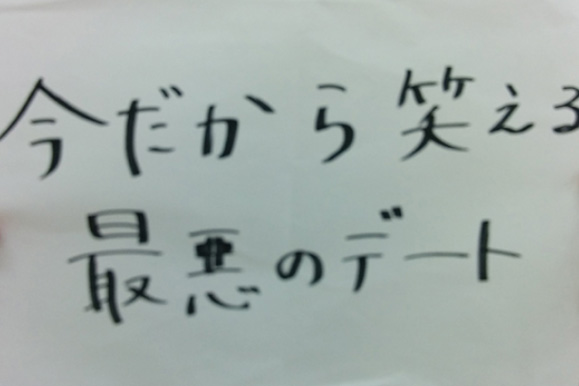 今だから笑える
最悪のデート